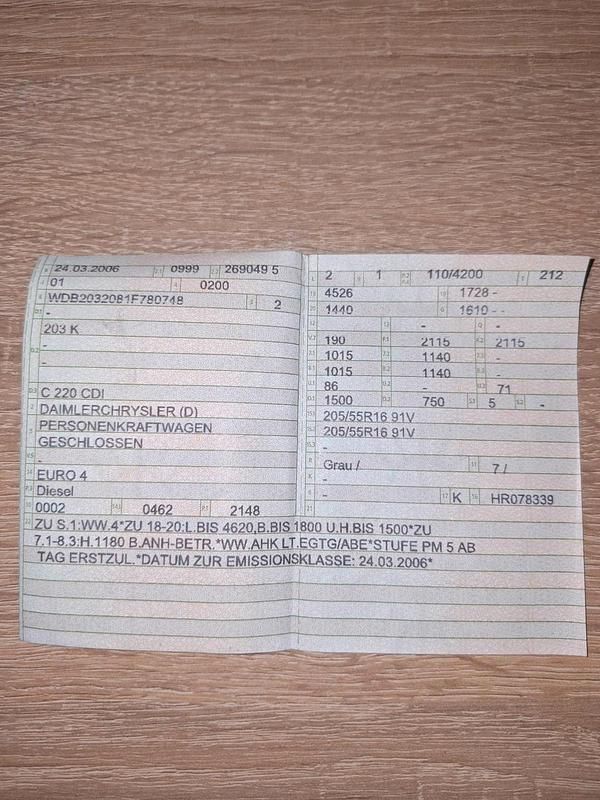 24.03.2006 0999 269049 5
01 0200
WDB2032081F780748 2
-
203 K
-
-
C 220 CDI
DAIMLERCHRYSLER (D)
PERSONENKRAFTWAGEN
GESCHLOSSEN
-
EURO 4
Diesel
0002 0462 2148
2 1 110/4200 212
4526 1728 -
1440 1610 - -
- - -
190 2115 2115
1015 1140 -
1015 1140 -
86 - 71
1500 750 5 -
205/55R16 91V
205/55R16 91V
-
Grau / 7 /
-
- K HR078339
ZU S.1:WW.4*ZU 18-20:L.BIS 4620,B.BIS 1800 U.H.BIS 1500*ZU
7.1-8.3:H.1180 B.ANH-BETR.*WW.AHK LT.EGTG/ABE*STUFE PM 5 AB
TAG ERSTZUL.*DATUM ZUR EMISSIONSKLASSE: 24.03.2006*